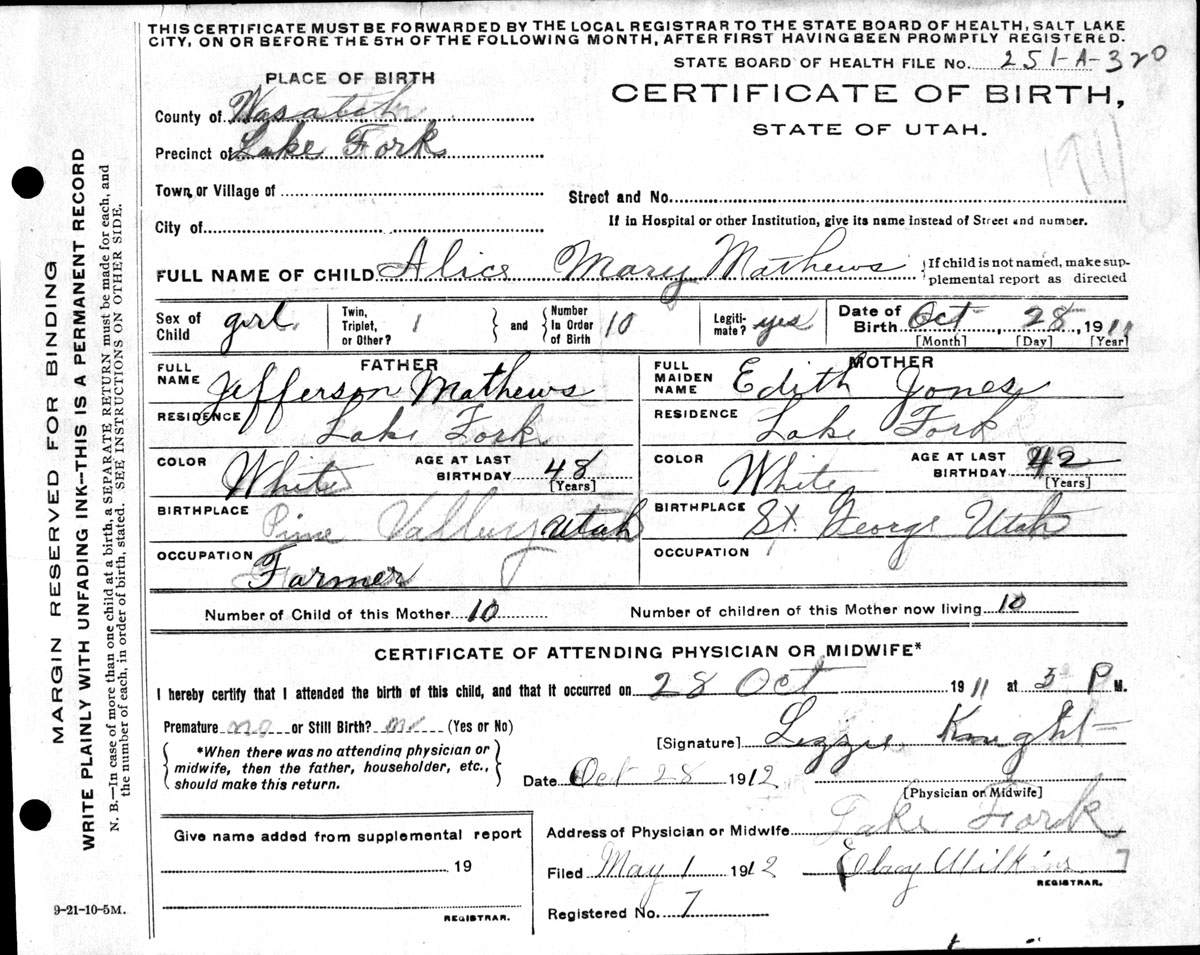 THIS CERTIFICATE MUST BE FORWARDED BY THE LOCAL REGISTRAR TO THE STATE BOARD OF HEALTH, SALT LAKE
CITY, ON OR BEFORE THE 5TH OF THE FOLLOWING MONTH, AFTER FIRST HAVING BEEN PROMPTLY REGISTERED.
STATE BOARD OF HEALTH FILE No. 251-A-320
PLACE OF BIRTH
CERTIFICATE OF BIRTH,
STATE OF UTAH.
1911
County of Wasatch
Precinct of Lake Fork
Town, or Village of
Street and No.
City of
If in Hospital or other Institution, give its name instead of Street and number.
FULL NAME OF CHILD Alice Mary Mathews { If child is not named, make sup-
plemental report as directed
Sex of Child girl Twin, Triplet, or Other? 1 } and { Number In Order of Birth 10 Legiti- mate? yes Date of Birth Oct, 28, 1911
[Month] [Day] [Year]
FATHER
FULL NAME Jefferson Mathews
RESIDENCE Lake Fork
COLOR White AGE AT LAST BIRTHDAY 48 [Years]
BIRTHPLACE Pine Valley Utah
OCCUPATION Farmer
MOTHER
FULL MAIDEN NAME Edith Jones
RESIDENCE Lake Fork
COLOR White AGE AT LAST BIRTHDAY 42 [Years]
BIRTHPLACE St. George Utah
OCCUPATION
Number of Child of this Mother 10 Number of children of this Mother now living 10
CERTIFICATE OF ATTENDING PHYSICIAN OR MIDWIFE*
I hereby certify that I attended the birth of this child, and that it occurred on 28 Oct 1911 at 3 P M.
Premature no or Still Birth? no (Yes or No)
*When there was no attending physician or
midwife, then the father, householder, etc.,
should make this return.
[Signature] Lizzie Knight
Date Oct 28 1912
[Physician or Midwife]
Give name added from supplemental report
19
REGISTRAR.
Address of Physician or Midwife Lake Fork
Filed May 1 1912 Wilkins
REGISTRAR.
Registered No. 7
9-21-10-5M.
MARGIN RESERVED FOR BINDING
WRITE PLAINLY WITH UNFADING INK--THIS IS A PERMANENT RECORD
N. B.--In case of more than one child at a birth, a SEPARATE RETURN must be made for each, and
the number of each, in order of birth, stated. SEE INSTRUCTIONS ON OTHER SIDE.